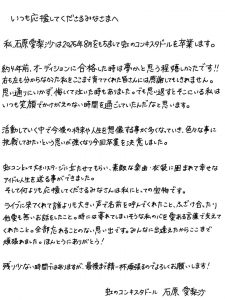 いつも応援してくださるみなさまへ
私、石原愛梨沙は2025年8月をもちまして虹のコンキスタドールを卒業します。
約9年前、オーディションに合格した時は夢みたいと思う程嬉しかったです!!
右も左も分からなかった私をここまで育ててくれた皆さんには感謝してもしきれません。
思い通りにいかず、悔しくて泣いた時もありました。でも思い返すとそこにいる私は
いつも笑顔でかけがえのない時間を過ごしていたんだなと思います。
活動していく中で今後の将来や人生を想像する事が多くなっていき、色々な事に
挑戦してみたいという思いが強くなり今回卒業を決意しました。
虹コンとして大きいステージに立たせてもらい、素敵な楽曲・衣装に囲まれて幸せな
アイドル人生を送る事ができました。
そして何よりも応援してくださるみなさんは私にとっての宝物です。
ライブに来てくれて誰よりも大きい声で名前を呼んでくれたこと、ふざけ合ったり
他愛も無いお話をしたこと。時には暴れてしまいそうな私の心を愛ある言葉で支えて
くれたこと。全部忘れることのない思い出です。みんなに出逢えたからここまで
頑張れました。ほんとうにありがとう!
残り少ない時間ではありますが、最後まで精一杯頑張るのでよろしくお願いします!
虹のコンキスタドール 石原愛梨沙